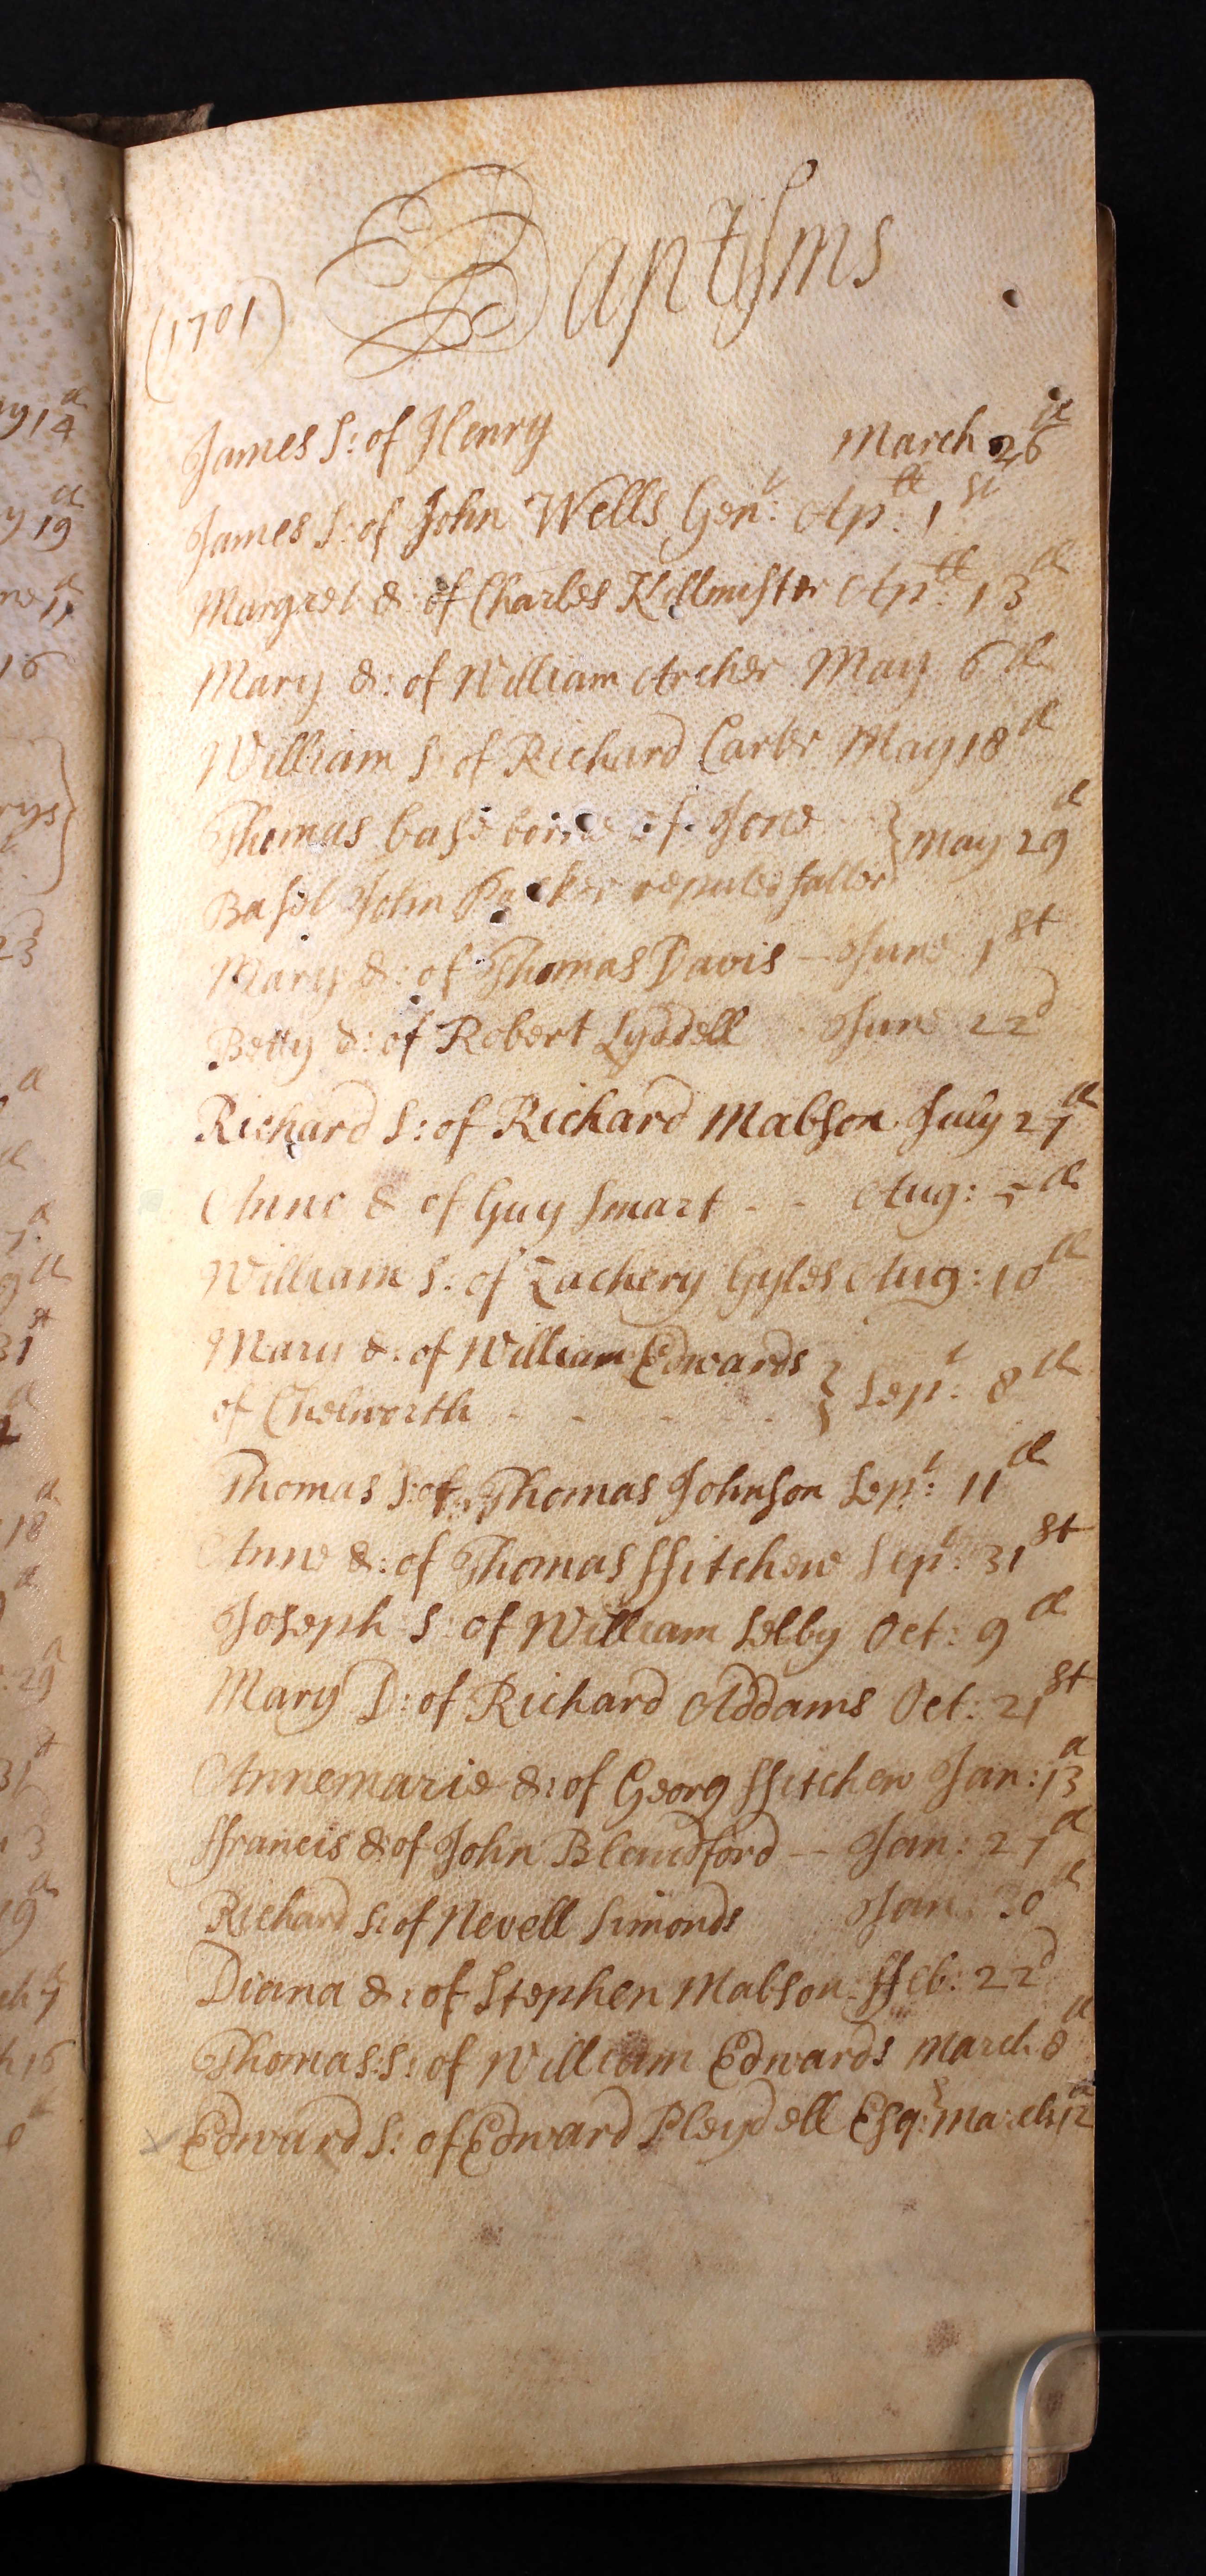 Baptisms
(1701)
James S: of Henry March 26th
James S: of John Wells Gent: Apll: 1st
Margret d: of Charles Killmister Apll: 13th
Mary d: of William Archer May 6th
William S: of Richard Carter May 18th
Thomas base borne of Jone } May 29th
Basil John Parker reputed father
Mary d: of Thomas Davis — June 1st
Betty d: of Robert Lyddell - June 22d
Richard S: of Richard Mabson July 27th
Anne d of Guy Smart - - Aug: 5th
William S. of Zachery Gyles Aug: 10th
Mary d: of William Edwards } Sept: 8th
of Chelworth - - - - -
Thomas S: of Thomas Johnson Sept: 11th
Anne d: of Thomas ffitchew Sept: 31st
Joseph S: of William Selby Oct: 9th
Mary D: of Richard Addams Oct: 21st
Annemarie d: of Georg ffitchew Jan: 13th
ffrancis d: of John Blandford — Jan: 27th
Richard S: of Nevell Simonds Jan: 30th
Diana d: of Stephen Mabson ffeb: 22d
Thomas S: of William Edwards March 8th
Edward S: of Edward Pleydell Esq: March 12th
14th
19th
16
23
31st
18th
29th
3
19th
16